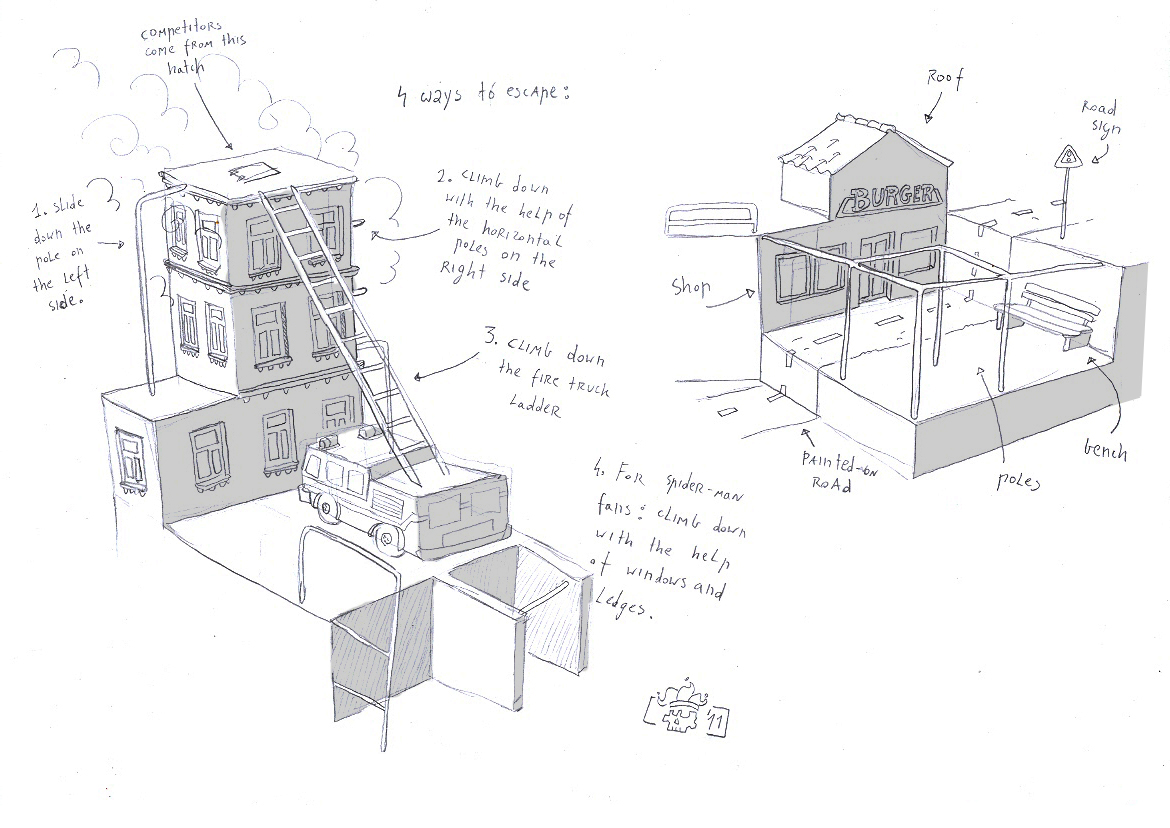 competitors
come from this
hatch
4 ways to escape:
1. slide
down the
pole on
the left
side.
2. climb down
with the help of
the horizontal
poles on the
Right side
3. climb down
the fire truck
Ladder
4. For spider-man
fans: climb down
with the help
of windows and
Ledges.
Roof
Road
sign
BURGER
shop
painted-on
Road
poles
bench
'11